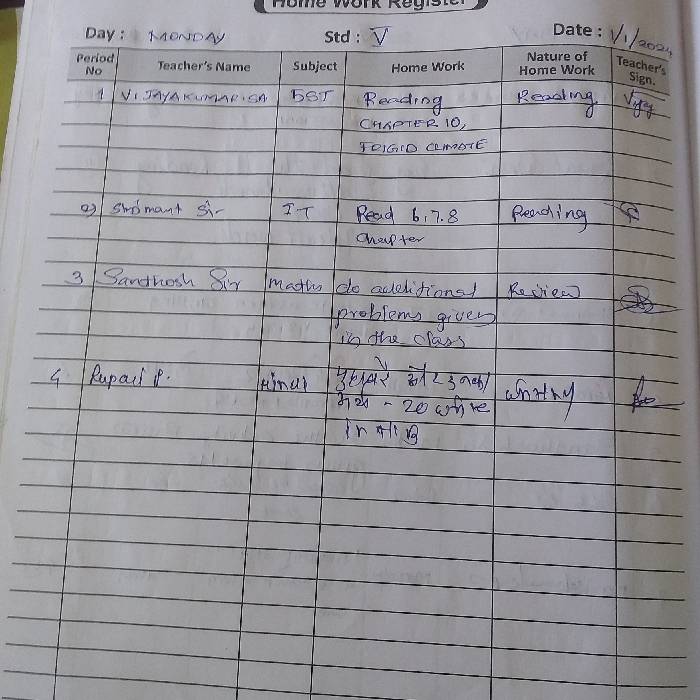 Home Work Register
Day : MONDAY Std : V Date : 1/1/2024
Period No Teacher's Name Subject Home Work Nature of Home Work Teacher's Sign.
1 VIJAYAKUMAR.SA SST Reading Reading
CHAPTER 10,
FRIGID CLIMATE
2) Shrimant Sir IT Read 6,7.8 Reading
Chapter
3 Santhosh Sir maths do additional Review
problems given
in the class
4 Rupali P. Hindi
- 20 write